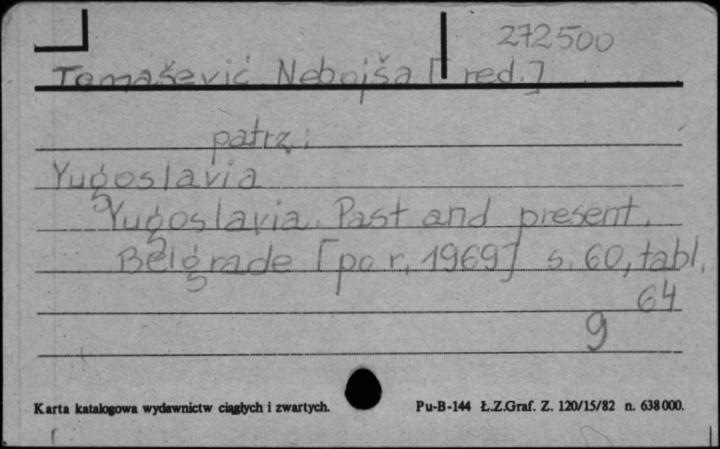 272500
Tomašević Nebojša [red.]
patrz:
Yugoslavia
Yugoslavia. Past and present.
Belgrade [po r. 1969] s. 60, tabl.
64
g
Karta katalogowa wydawnictw ciągłych i zwartych.
Pu-B-144 Ł.Z.Graf. Z. 120/15/82 n. 638000.